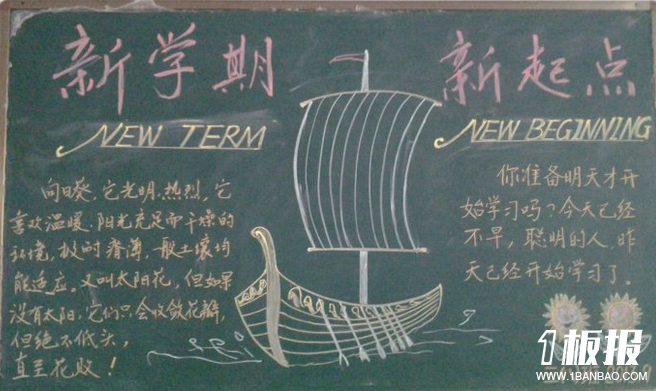 新学期
新起点
NEW TERM
NEW BEGINNING
向日葵，它光明，热烈，它
喜欢温暖，阳光充足而干燥的
环境，极耐瘠薄，一般土壤均
能适应，又叫太阳花，但如果
没有太阳，它们只会收敛花瓣，
但绝不低头，
直至花败！
你准备明天才开
始学习吗？今天已经
不早，聪明的人，昨
天已经开始学习了。
1板报
WWW.1BANBAO.COM